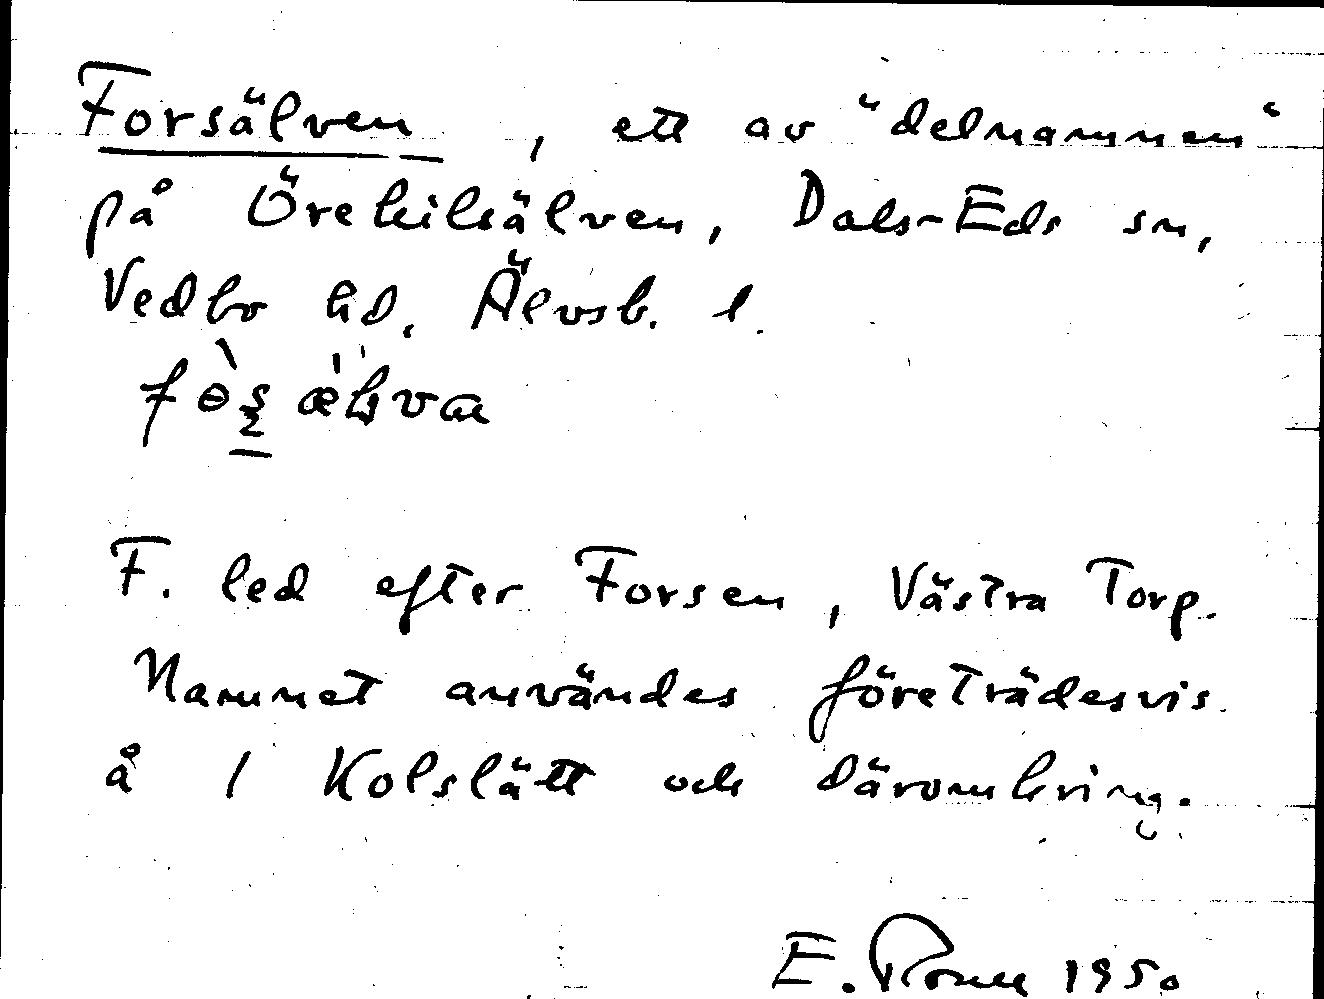 Forsälven, ett av "delnamnen"
på Örekilsälven, Dals-Eds sn,
Vedbo hd. Älvsb. l.
F. led efter Forsen, Västra Torp.
Namnet användes företrädesvis
å 1 Kolslätt och däromkring.
E. 1950